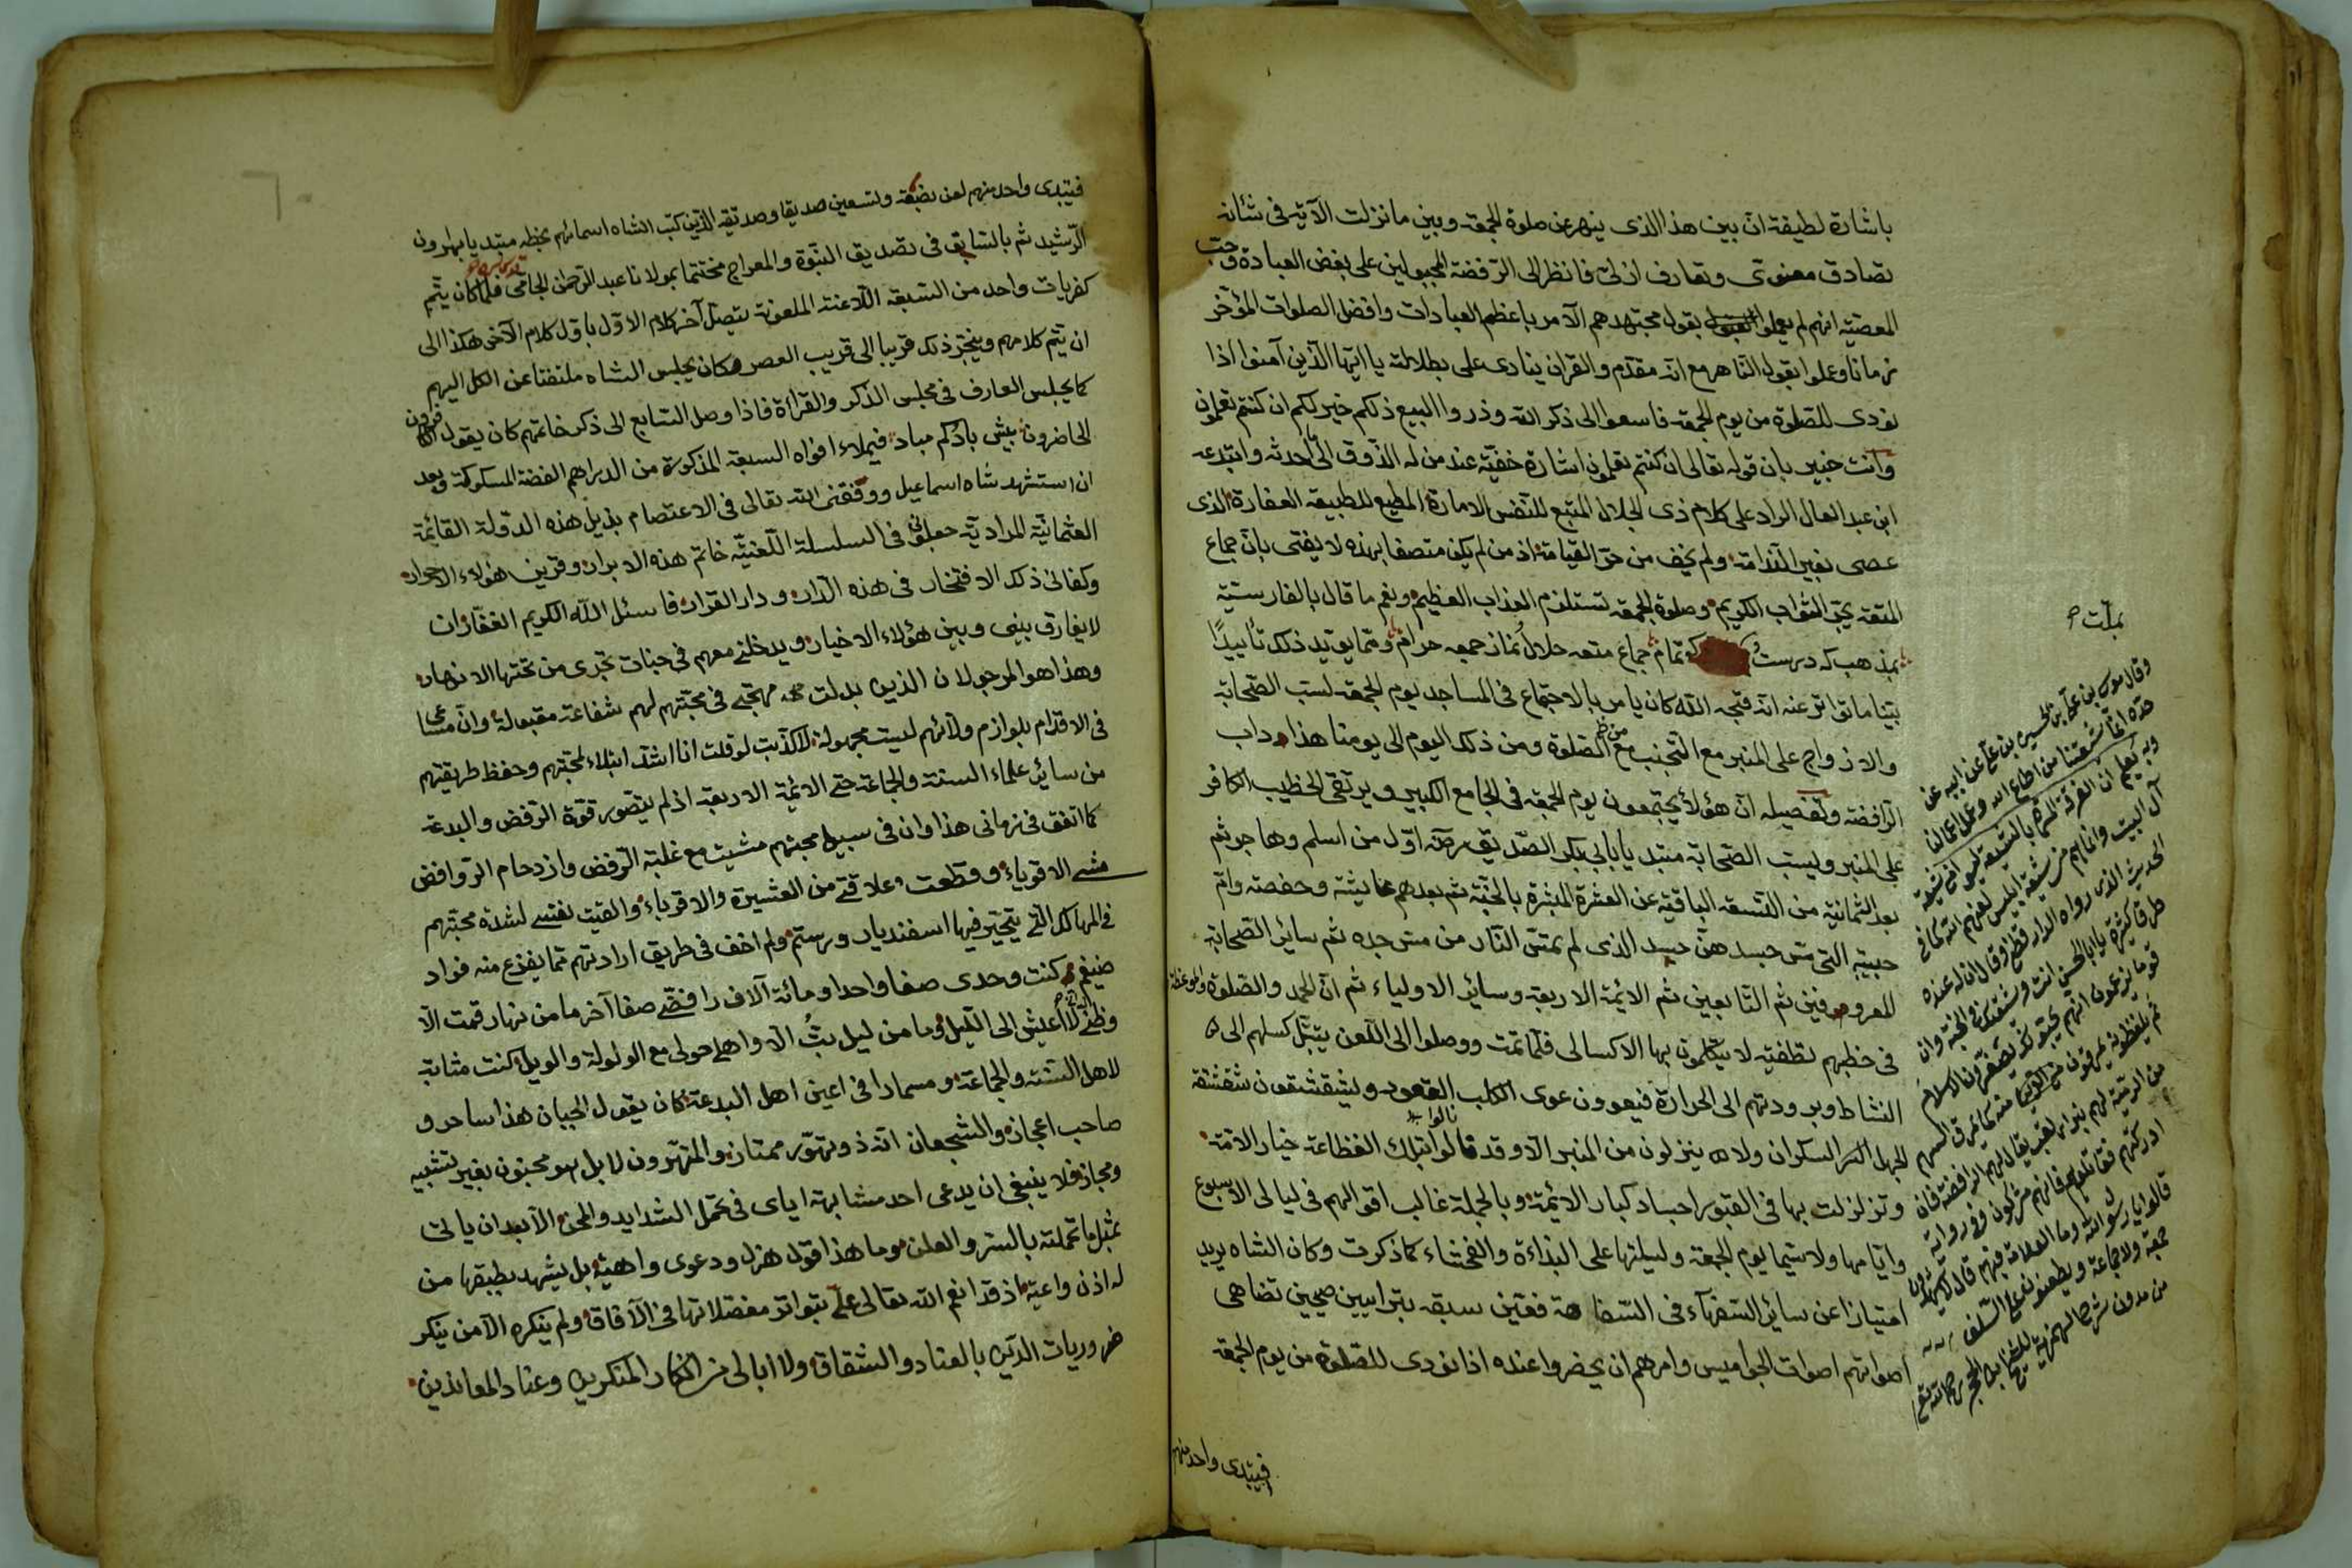 باشارة لطيفة ان بين هذا الذى ينهى عن صلوة الجمعة وبين ما نزلت الآية فى شانه
تصادق معنوى وتعارف ازلى فانظر الى الرفضة المجبولين على بغض العبادة وحب
المعصية انهم لم يعملوا بقول مجتهدهم الآمر باعظم العبادات وافضل الصلوات المؤخر
زمانا وعملوا بقول الناهى مع انه مقدم والقران ينادى على بطلانه يا ايها الذين آمنوا اذا
نودى للصلوة من يوم الجمعة فاسعوا الى ذكر الله وذروا البيع ذلكم خير لكم ان كنتم تعلمون
وانت خبير بان قوله تعالى ان كنتم تعلمون اشارة خفية عند من له الذوق الى احدثه وابتدعه
ابن عبد العال الراد على كلام ذى الجلال المتبع للنفس الامارة المطيع للطبيعة الغدارة الذى
عصى بغير الندامة ولم يخف من حر القيامة اذ من لم يكن متصفا بهذه لا يفتى بان جماع
المتعة يجر الثواب الكريم وصلوة الجمعة تستلزم العذاب العظيم ونعم ما قال بالفارسية
بمذهب كه درست كو تمام جماع متعه حلال نماز جمعه حرام ومما يؤيد ذلك تأييدًا
بينا ما تواتر عنه انه قبحه الله كان يامر بالاجتماع فى المساجد يوم الجمعة لسب الصحابة
والازواج على المنبر مع التجنب من الصلوة ومن ذلك اليوم الى يومنا هذا داب
الرافضة وتفصيله ان هؤلا يجتمعون يوم الجمعة فى الجامع الكبير ويرتقى الخطيب الكافر
على المنبر ويسب الصحابة مبتديا بابى بكر الصديق رضه اول من اسلم وهاجر ثم
بعد الثمانية من التسعة الباقية عن العشرة المبشرة بالجنة ثم بعدهم عائشة وحفصة وام
حبيبة التى مس جسدهن جسد الذى لم يمس النار من مس جده ثم سائر الصحابة
المعروفين ثم التابعين ثم الائمة الاربعة وسائر الاولياء ثم ان الحمد والصلوة والموعظة
فى خطبهم تطفية لا يتكلمون بها الا كسالى فلما تمت ووصلوا الى اللعن يتبدل كسلهم الى
النشاط وبرودتهم الى الحرارة فيعوون عوى الكلب العقور ويشقشقون شقشقة
الجمل السكران ولا ينزلون من المنبر الا وقد نالوا بتلك الفظاعة خيار الامة
وتزلزلت بها فى القبور اجساد كبار الائمة وبالجملة غالب اقوالهم فى ليالى الاسبوع
وايامها ولا سيما يوم الجمعة وليلتها على البذاءة والفحشاء كما ذكرت وكان الشاه يريد
امتيازا عن سائر السفهآء فى السفاهة فعين سبعة تبرائيين صيحين تضاهى
اصواتهم اصوات الجواميس وامرهم ان يحضروا عنده اذا نودى للصلوة من يوم الجمعة
فيبتدى واحد منهم
بملت
وقال موسى بن على بن الحسين بن على عن ابيه عن
جده انما شيعتنا من اطاع الله وعمل اعمالنا
وبه يعلم ان الفرقة المسماة بالشيعة ليسوا من شيعة
آل البيت وانما هم من شيعة ابليس لعنهم الله كما فى
الحديث الذى رواه الدارقطنى وقال ان له عنده
طرقا كثيرة يا ابا الحسن انت وشيعتك فى الجنة وان
قوما يزعمون انهم يحبونك يصغرون الاسلام
ثم يلفظونه يمرقون من الدين كما يمرق السهم
من الرمية لهم نبز يقال لهم الرافضة فان
ادركتهم فقاتلهم فانهم مشركون وفى رواية
قالوا يا رسول الله وما العلامة فيهم قال لا يشهدون
جمعة ولا جماعة ويطعنون على السلف
فيبتدى واحد منهم لعن بضعة وتسعين صديقا وصديقة الذين كتب الشاه اسمائهم بخطه مبتديا بهارون
الرشيد ثم بالسابق فى تصديق النبوة والمعراج مختتما بمولانا عبد الرحمن الجامى فلما كان يتم
كفريات واحد من السبعة اللاعنة الملعونة يتصل آخر كلام الاول باول كلام الآخر هكذا الى
ان يتم كلامهم وينجر ذلك قريبا الى قريب العصر وكان يجلس الشاه ملتفتا عن الكل اليهم
كما يجلس العارف فى مجلس الذكر والقراءة فاذا وصل السابع الى ذكر خاتمهم كان يقول
الحاضرون بيش باد كم مباد فيملاء افواه السبعة المذكورة من الدراهم الفضة المسكوكة وبعد
ان استشهد شاه اسماعيل ووفقنى الله تعالى فى الاعتصام بذيل هذه الدولة القائمة
العثمانية المرادية جعلونى فى السلسلة اللعنية خاتم هذه الابرار وقرين هؤلاء الاحرار
وكفانى ذلك الافتخار فى هذه الدار ودار القرار فاسئل الله الكريم الغفار ان
لا يفارق بينى وبين هؤلاء الاخيار ويدخلنى معهم فى جنات تجرى من تحتها الانهار
وهذا هو المرجو لان الذين بدلت مهجتى فى محبتهم لهم شفاعة مقبولة وان مساعى
فى الاقدام بلوازم ولائهم ليست مجهولة لا كذبت لو قلت انا اشد ابتلاء لمحبتهم وحفظ طريقتهم
من سائر علماء السنة والجماعة حتى الائمة الاربعة اذ لم يتصور قوة الرفض والبدعة
كما اتفق فى زمانى هذا وان فى سبيل محبتهم مشيت مع غلبة الرفض وازدحام الروافض
مشى الاقوياء وقطعت علاقتى من العشيرة والاقرباء والقيت نفسى لشدة محبتهم
فى المهالك التى يتحير فيها اسفنديار ورستم ولم اخف فى طريق ارادتهم مما يفزع منه فواد
ضيغم كنت وحدى صفا واحدا ومائة آلاف رافضى صفا آخر ما من نهار قمت الا
وظنى لا اعيش الى الليل وما من ليل بت الا واهلى حولى مع الولولة والويل كنت مثابة
لاهل السنة والجماعة ومسمارا فى اعين اهل البدعة كان يقول الجبان هذا ساحر و
صاحب اعجاز والشجعان انه ذو تهور ممتاز والمتهورون لا بل هو مجنون بغير تشبيه
ومجاز فلا ينبغى ان يدعى احد مشابهة اياى فى تحمل الشدايد والمحن الا بعد ان ياتى
بمثل ما تحملته بالسر والعلن وما هذا قول هزل ودعوى واهية بل يشهد بطبقها من
له اذن واعية اذ قد انعم الله تعالى على بتواتر مفصلاتها فى الآفاق ولم ينكره الا من ينكر
ضروريات الدين بالعناد والشقاق ولا ابالى من انكار المنكرين وعناد المعاندين